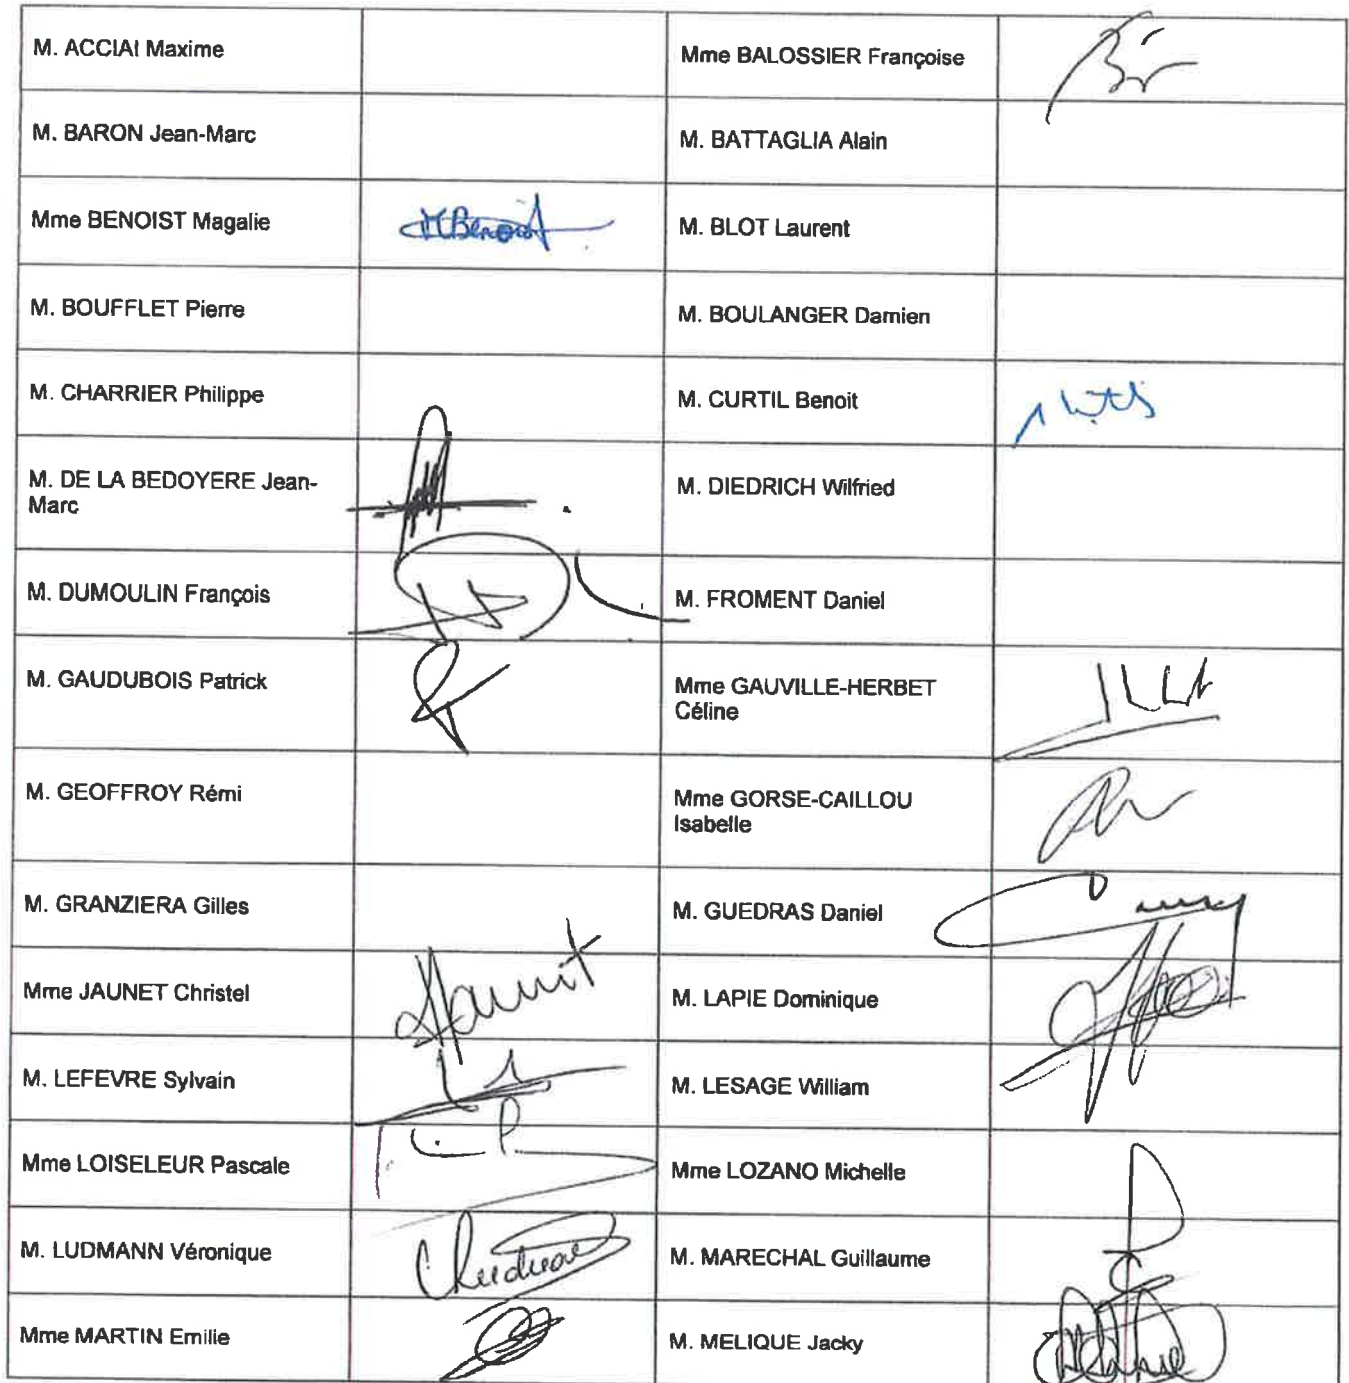 M. ACCIAI Maxime
Mme BALOSSIER Françoise
M. BARON Jean-Marc
M. BATTAGLIA Alain
Mme BENOIST Magalie
MBenoist
M. BLOT Laurent
M. BOUFFLET Pierre
M. BOULANGER Damien
M. CHARRIER Philippe
M. CURTIL Benoit
M. DE LA BEDOYERE Jean-
Marc
M. DIEDRICH Wilfried
M. DUMOULIN François
M. FROMENT Daniel
M. GAUDUBOIS Patrick
Mme GAUVILLE-HERBET
Céline
M. GEOFFROY Rémi
Mme GORSE-CAILLOU
Isabelle
M. GRANZIERA Gilles
M. GUEDRAS Daniel
Mme JAUNET Christel
M. LAPIE Dominique
M. LEFEVRE Sylvain
M. LESAGE William
Mme LOISELEUR Pascale
Mme LOZANO Michelle
M. LUDMANN Véronique
M. MARECHAL Guillaume
Mme MARTIN Emilie
M. MELIQUE Jacky